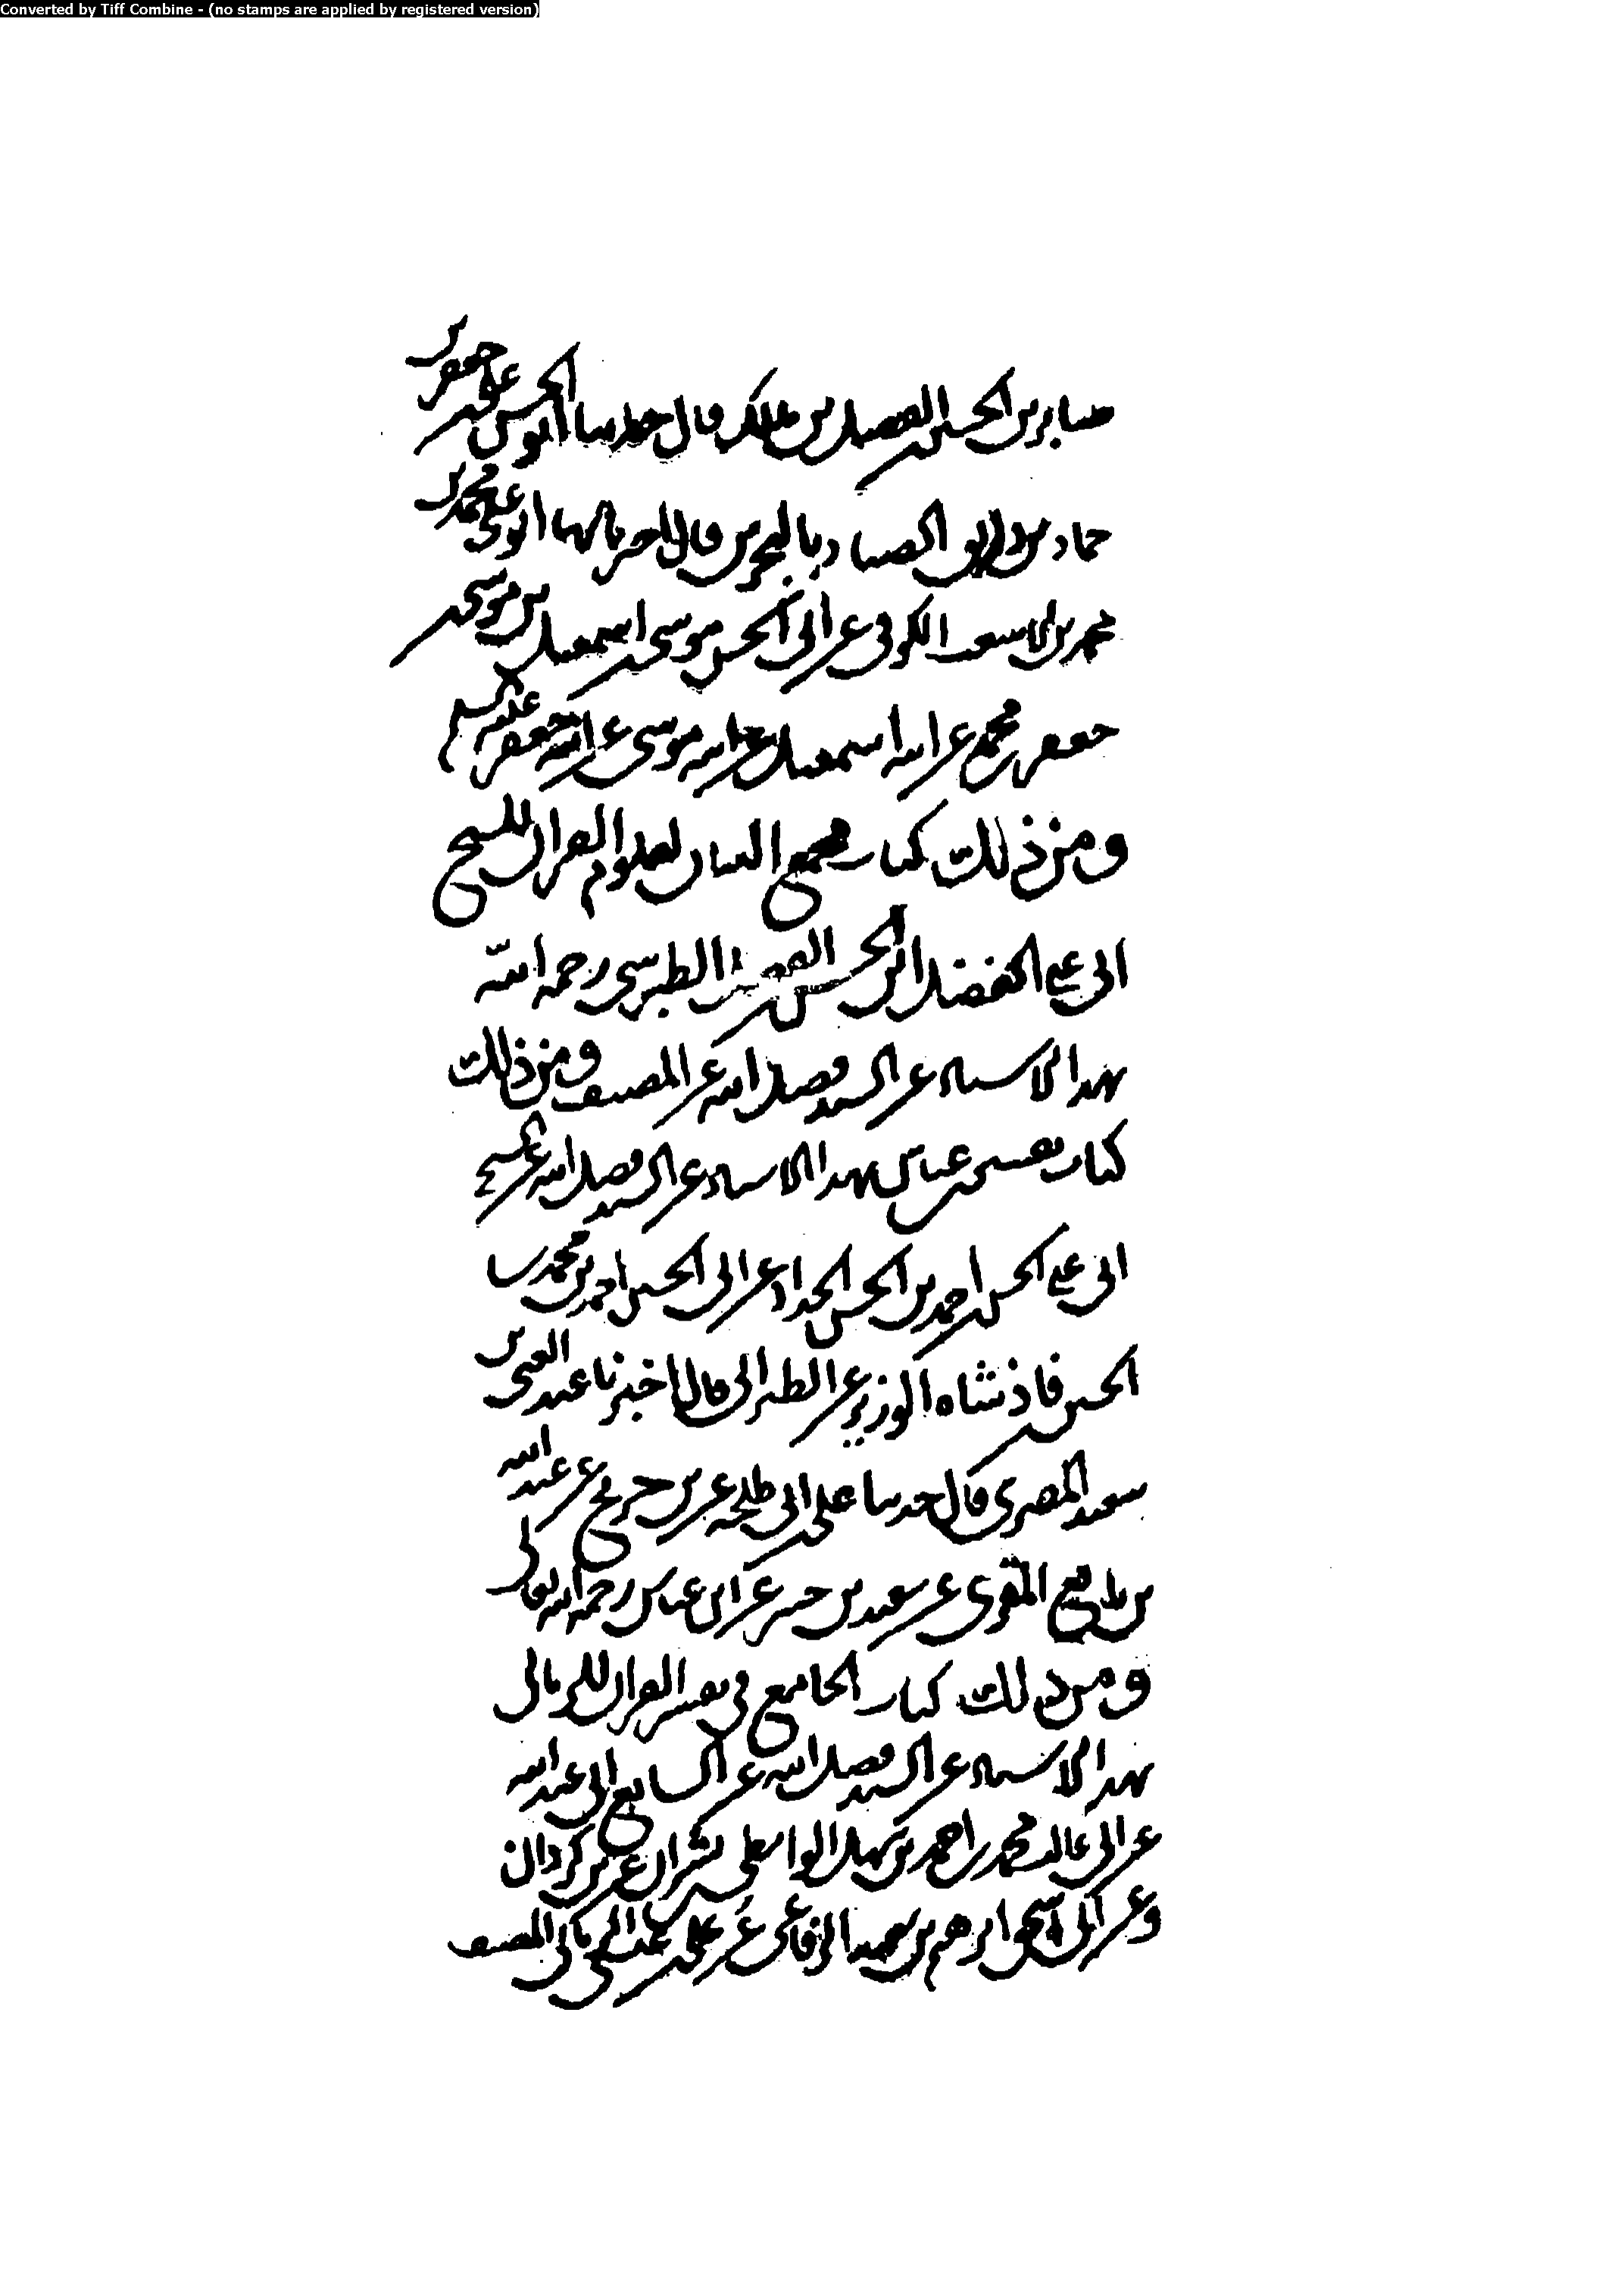 Converted by Tiff Combine - (no stamps are applied by registered version)
صابر بن الحسين بن الفضل بن مالك قال حدثنا ابو الحسن علي بن جعفر بن
حماد بن الصياد بالبحرين قال اخبرنا بها ابو علي محمد بن
محمد بن الاشعث الكوفي عن ابي الحسن موسى بن اسمعيل بن موسى بن
جعفر بن محمد عن ابيه اسمعيل عن ابيه موسى عن ابيه جعفر عليه السلم
ومن ذلك كتاب مجمع البيان لعلوم القران للشيخ
ابي علي الفضل ابن الحسن بن الفضل الطبرسي رحمه الله
بهذا الاسناد عن السيد فضل الله عن المصنف ومن ذلك
كتاب تفسير بن عباس بهذا الاسناد عن السيد فضل الله عن الشيخ
ابي علي الحسن بن احمد بن الحسن الحداد عن ابي الحسين احمد بن محمد بن
الحسين بن فاذشاه الوزير عن الطبراني قال اخبرنا عبد الغني بن
سعيد المصري قال حدثنا علي بن ابي طلحه عن بن جريج عن عبد الله
المقري عن سعيد بن جبير عن ابن عباس رحمه الله تعالى
ومن ذلك كتاب الجامع في تفسير القران للرماني
بهذا الاسناد عن السيد فضل الله عن ابي عبد الله
عن ابي غالب محمد بن احمد بن سهل الواسطي بن بشران عن بن كردان
وعن ابي اسحق ابرهيم بن سعيد الرفاعي عن علي بن عيسى الرماني المصنف